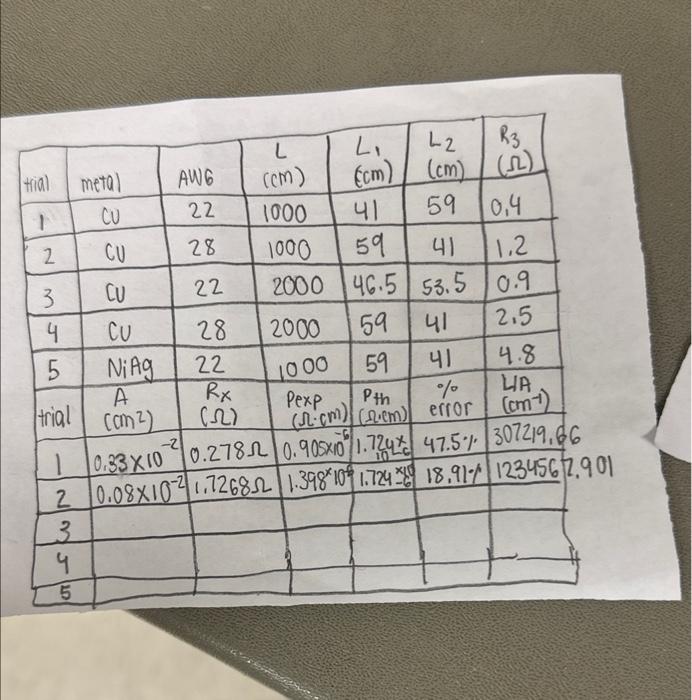 trial metal AWG L (cm) L₁ (cm) L2 (cm) R3 (Ω)
1 Cu 22 1000 41 59 0.4
2 Cu 28 1000 59 41 1.2
3 Cu 22 2000 46.5 53.5 0.9
4 Cu 28 2000 59 41 2.5
5 NiAg 22 1000 59 41 4.8
trial A (cm2) Rx (Ω) Pexp (Ω·cm) Pth (Ω·cm) % error L/A (cm⁻¹)
1 0.33×10⁻² 0.278Ω 0.905×10⁻⁶ 1.724×10⁻⁶ 47.5% 307219.66
2 0.08×10⁻² 1.7268Ω 1.398×10⁻⁶ 1.724×10⁻⁶ 18.91% 1234567.901
3
4
5